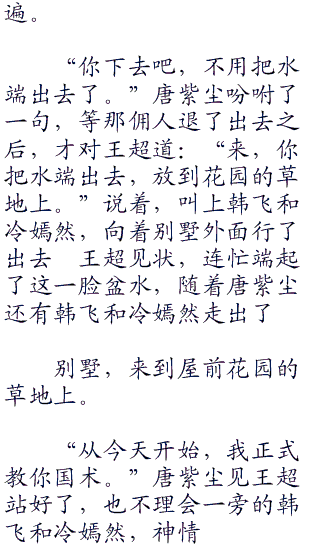 遍。
“你下去吧，不用把水
端出去了。”唐紫尘吩咐了
一句，等那佣人退了出去之
后，才对王超道：“来，你
把水端出去，放到花园的草
地上。”说着，叫上韩飞和
冷嫣然，向着别墅外面行了
出去　王超见状，连忙端起
了这一脸盆水，随着唐紫尘
还有韩飞和冷嫣然走出了
别墅，来到屋前花园的
草地上。
“从今天开始，我正式
教你国术。”唐紫尘见王超
站好了，也不理会一旁的韩
飞和冷嫣然，神情